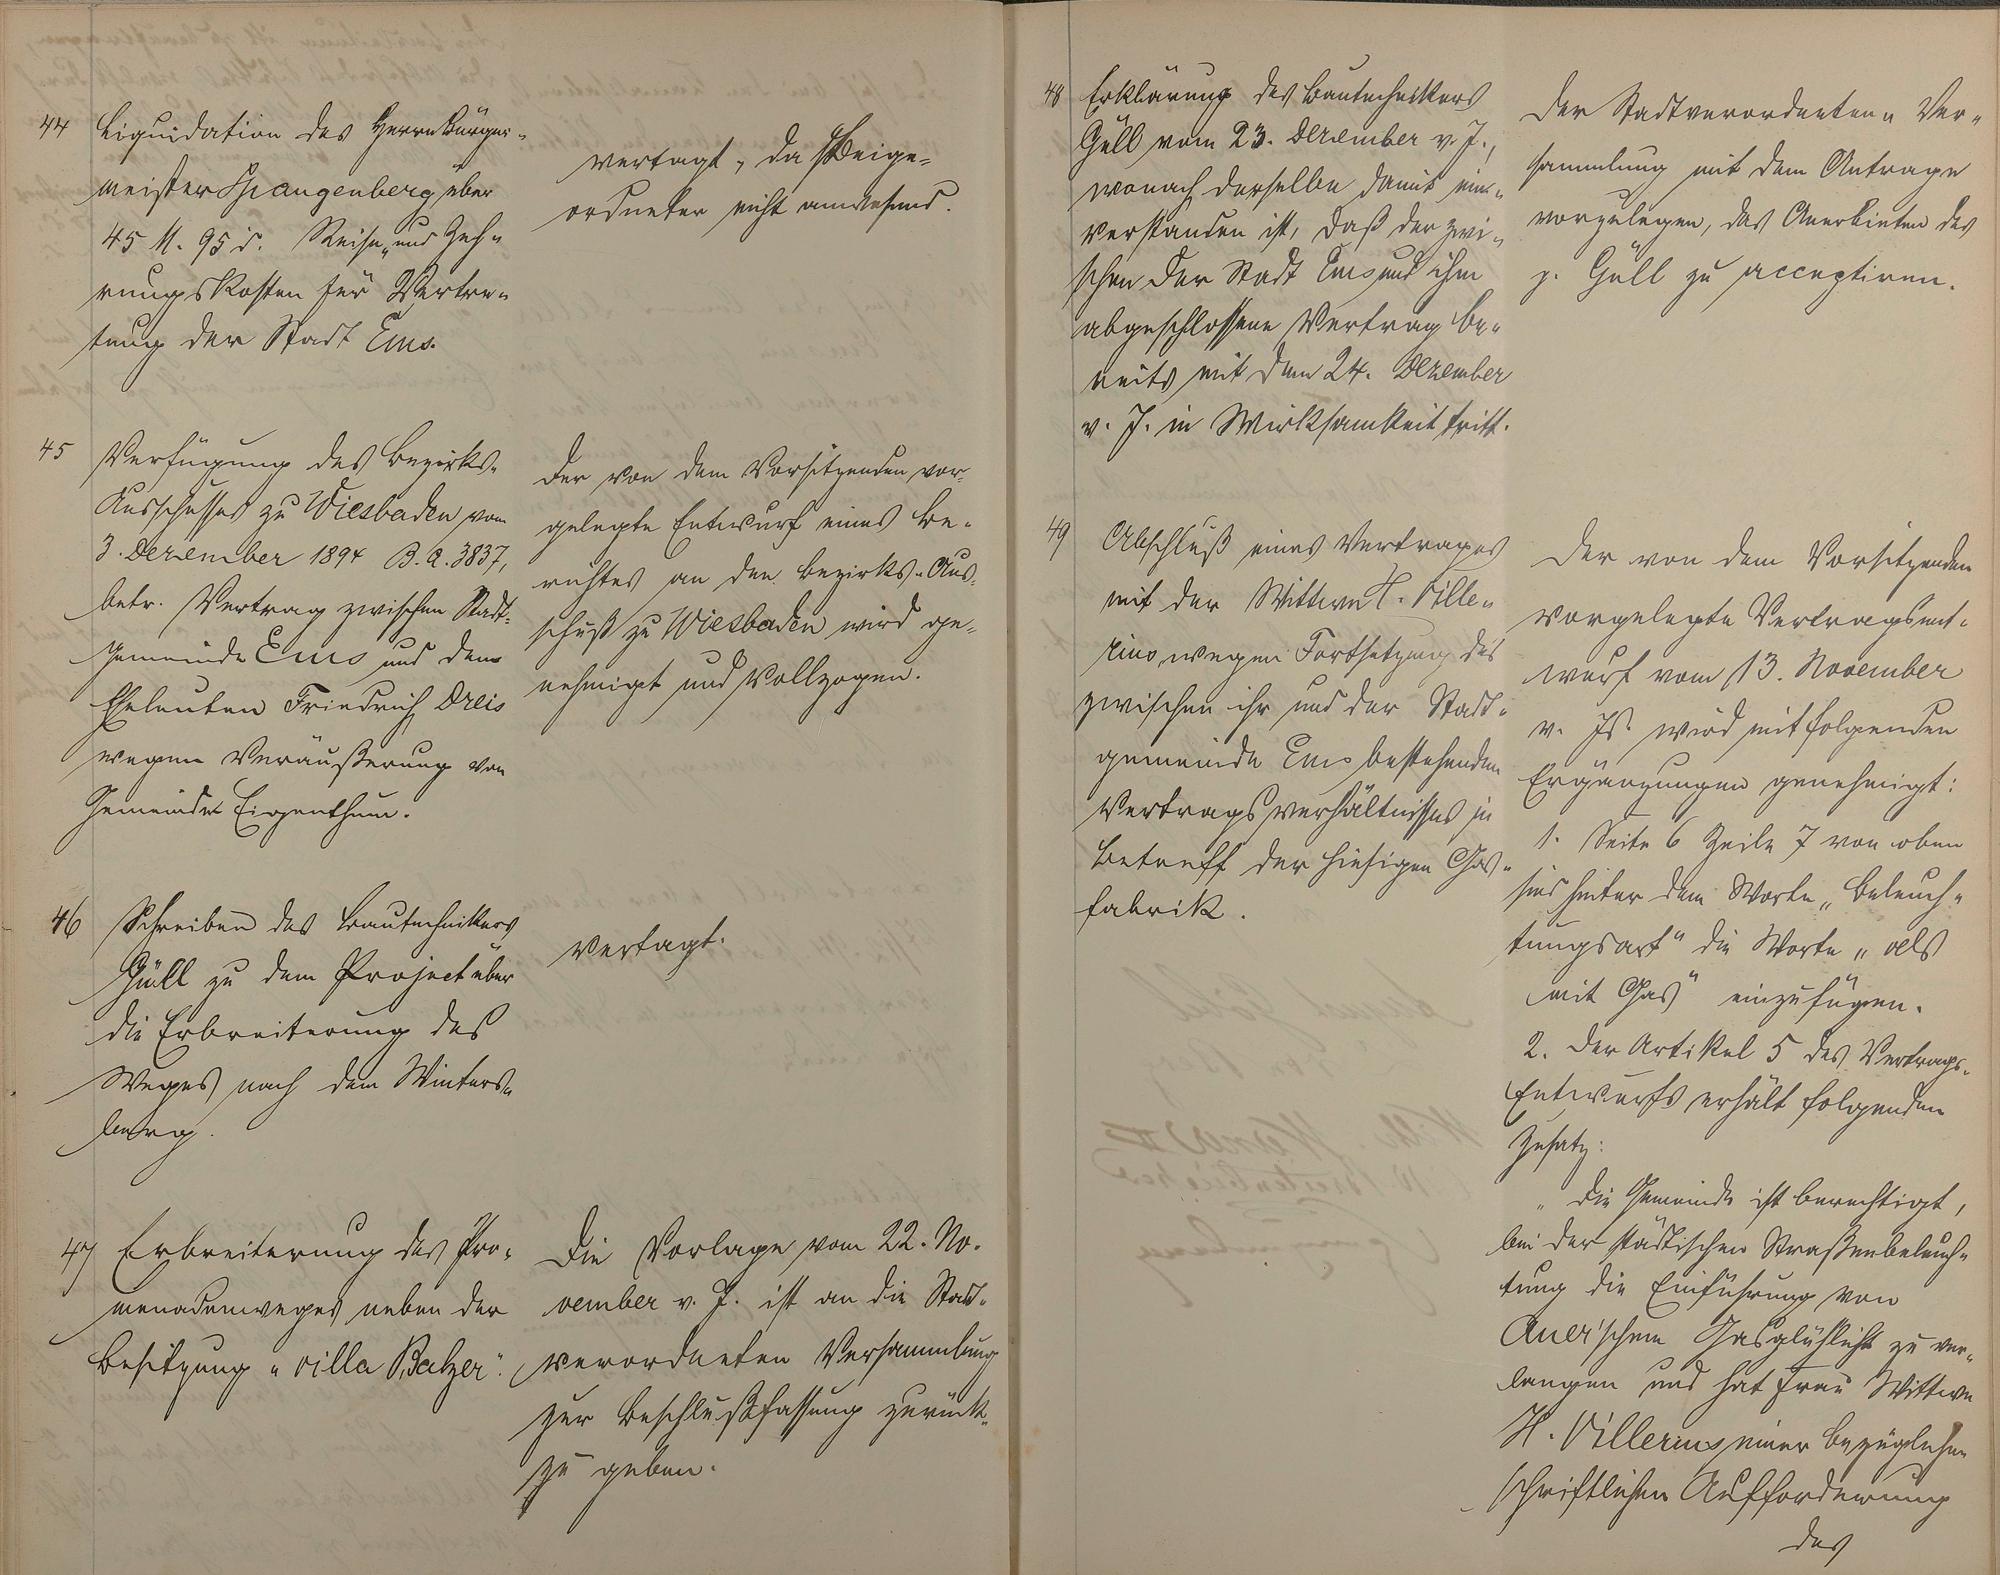 44 Liquidation des Herrn Bürger-
meister Spangenberg über
45 M. 95 d. Reise- und Zeh-
rungskosten für Vertre-
tung der Stadt Ems.
vertagt, da Beige-
ordneter nicht anwesend.
45 Verfügung des Bezirks-
Ausschusses zu Wiesbaden vom
3. Dezember 1894 B.A. 3837,
betr. Vertrag zwischen Stadt-
Gemeinde Ems und den
Eheleuten Friedrich Dreis
wegen Veräußerung von
Gemeinde Eigenthum.
Der von dem Vorsitzenden vor-
gelegte Entwurf eines Be-
richtes an den Bezirks-Aus-
schuß zu Wiesbaden wird ge-
nehmigt und vollzogen.
46 Schreiben des Bautechnikers
Güll zu dem Project über
die Erbreiterung des
Weges nach dem Winters-
berg.
vertagt.
47 Erbreiterung des Pro-
menadenweges neben der
Besitzung "Villa Balzer".
Die Vorlage vom 22. No-
vember v. J. ist an die Stadt-
verordneten Versammlung
zur Beschlußfassung zurück-
zu geben.
48 Erklärung des Bautechnikers
Güll vom 23. Dezember v. J.,
wonach derselbe damit ein-
verstanden ist, daß der zwi-
schen der Stadt Ems und ihm
abgeschlossene Vertrag be-
reits mit dem 24. Dezember
v. J. in Wirksamkeit tritt.
Der Stadtverordneten-Ver-
sammlung mit dem Antrage
vorzulegen, das Anerbieten des
p. Güll zu acceptiren.
49 Abschluß eines Vertrages
mit der Wittwe H. Ville-
rius wegen Fortsetzung des
zwischen ihr und der Stadt-
gemeinde Ems bestehenden
Vertragsverhältnisses in
Betreff der hiesigen Gas-
fabrik.
Der von dem Vorsitzenden
vorgelegte Vertragsent-
wurf vom 13. November
v. Js. wird mit folgenden
Ergänzungen genehmigt:
1. Seite 6 Zeile 7 von oben
sind hinter dem Worte "Beleuch-
tungsart" die Worte "als
mit Gas" einzufügen.
2. Der Artikel 5 des Vertrags-
Entwurfs erhält folgenden
Zusatz:
"Die Gemeinde ist berechtigt,
bei der städtischen Straßenbeleuch-
tung die Einführung von
Auer'schem Gasglühlicht zu ver-
langen und hat Frau Wittwe
H. Villerius einer bezüglichen
schriftlichen Aufforderung
des